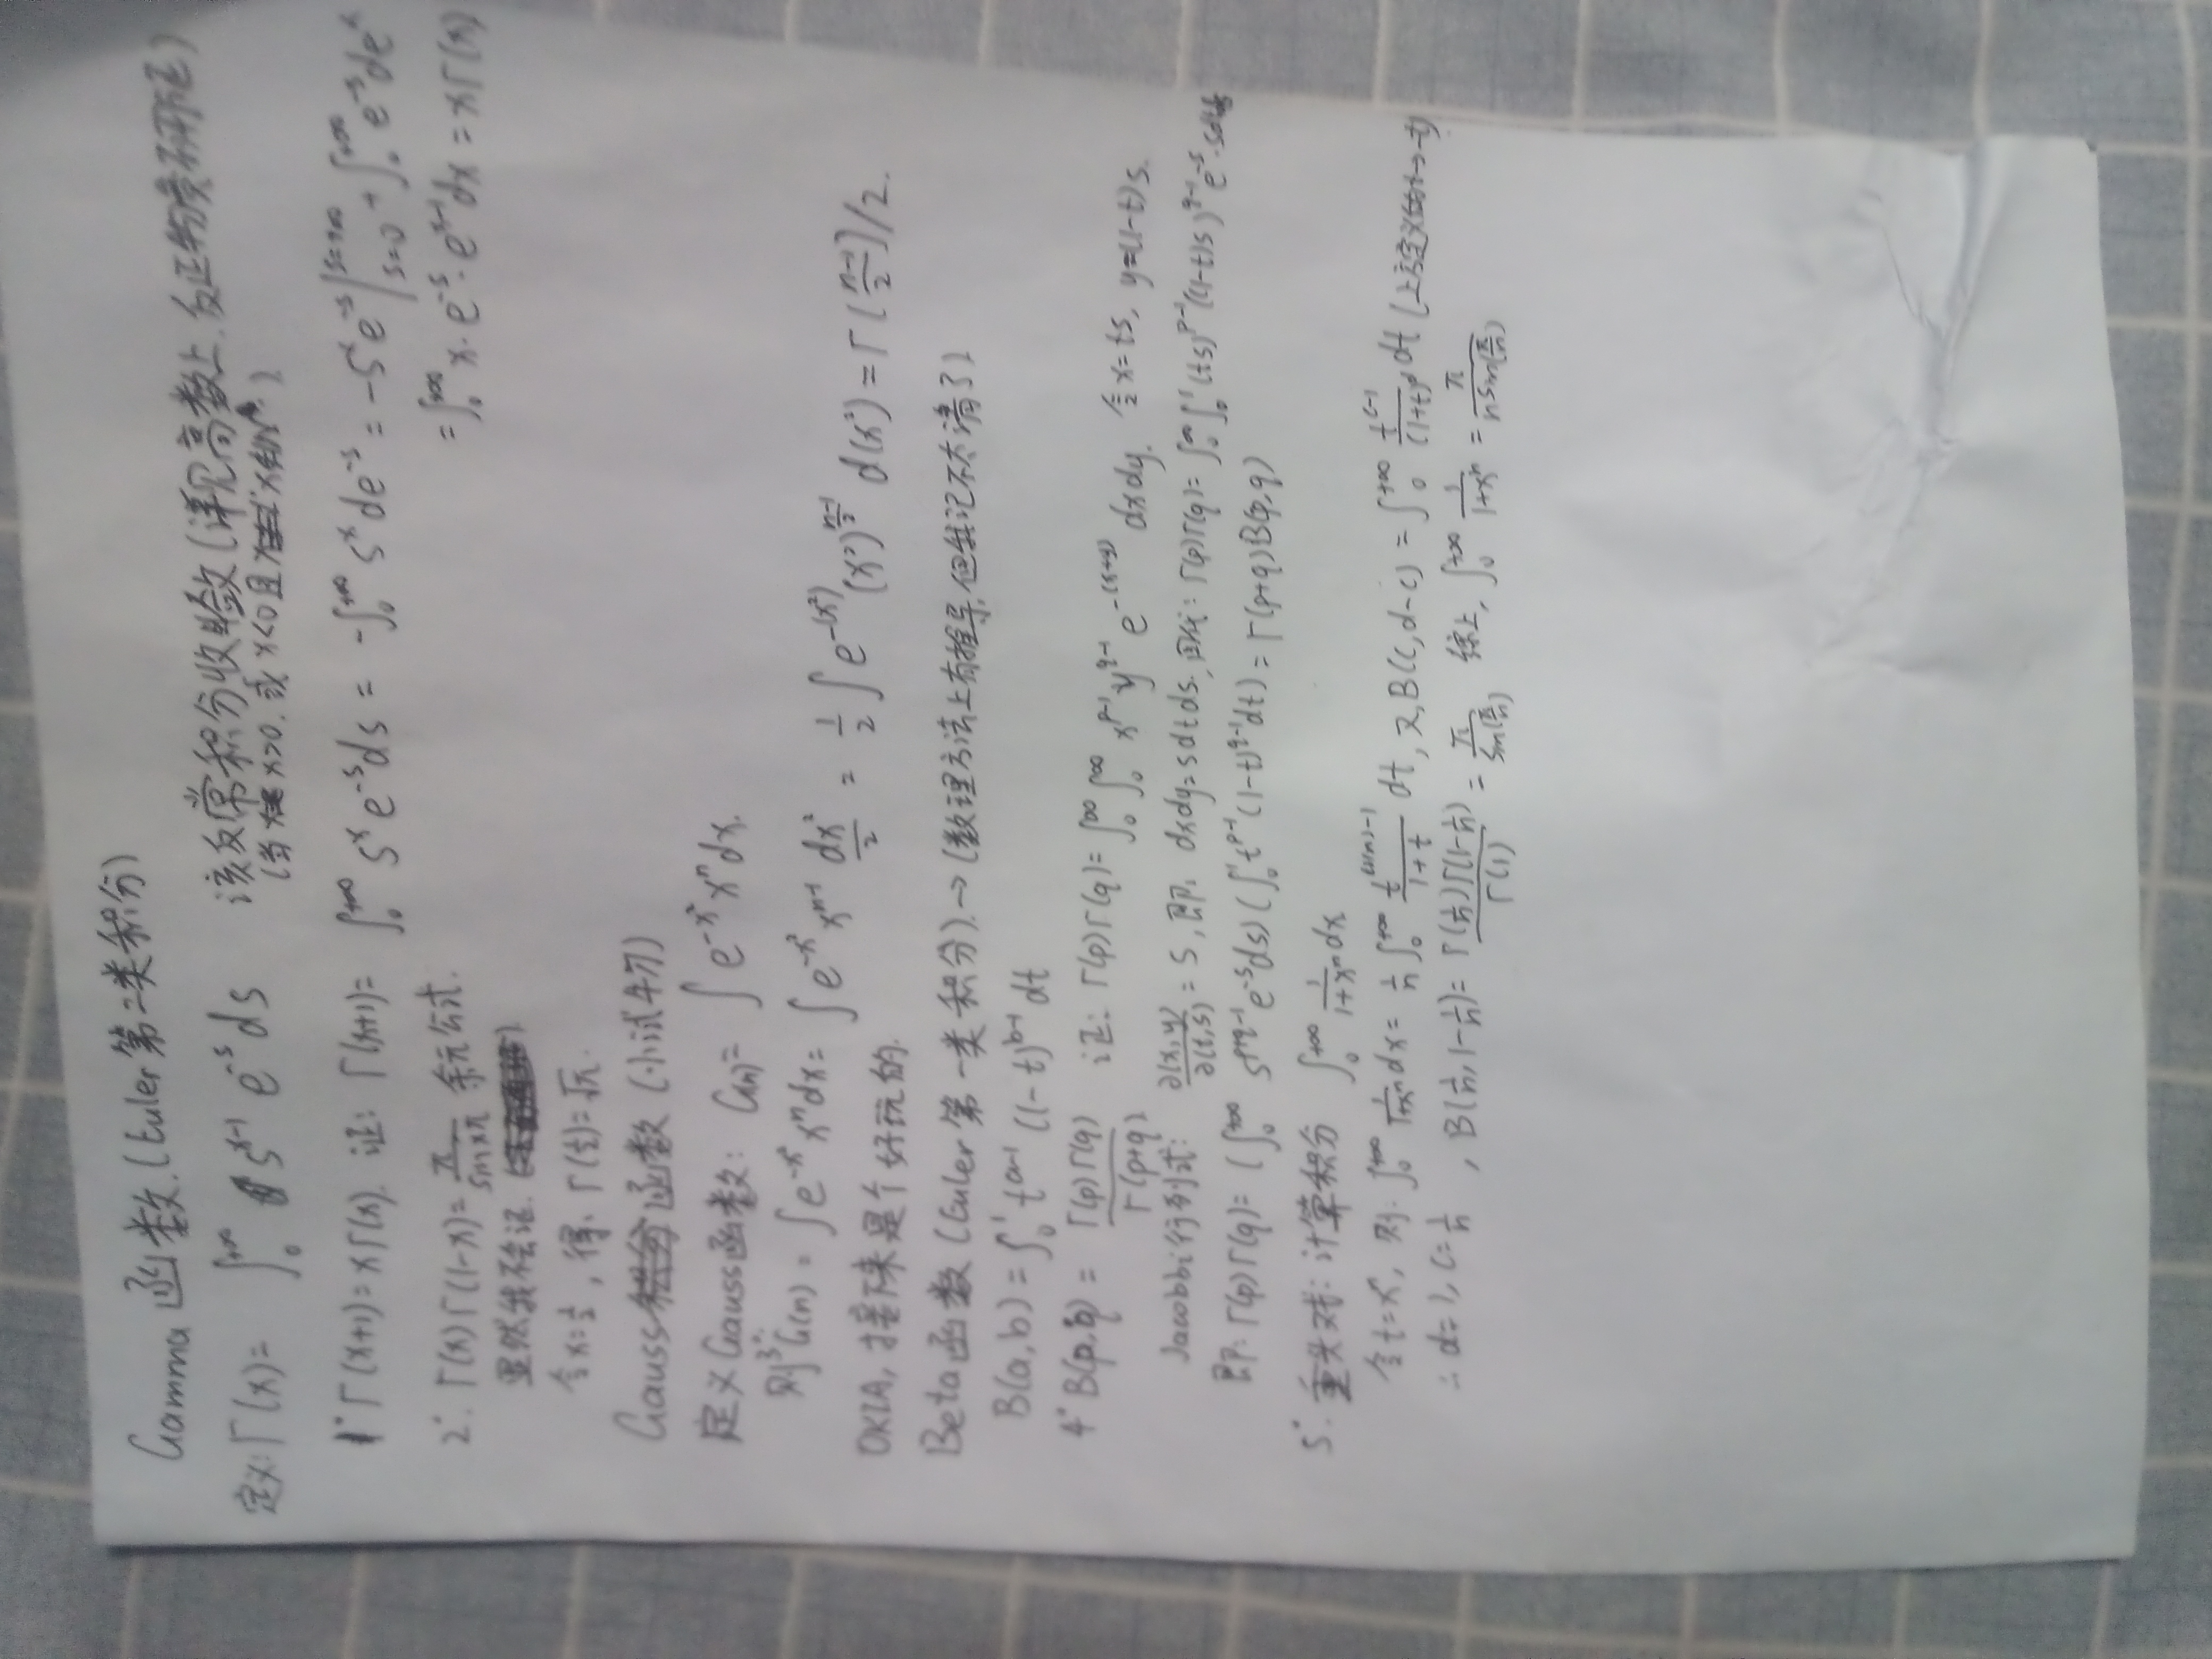 Gamma 函数.(Euler第二类积分)
定义: Γ(x)= ∫₀^{+∞} s^{x-1} e^{-s} ds 该反常积分收敛(详见高数上.反正老黄不用证)
(当 x>0. 或 x<0且 )
1° Γ(x+1)=xΓ(x). 证: Γ(x+1)= ∫₀^{+∞} s^x e^{-s} ds = -∫₀^{+∞} s^x de^{-s} = -s^x e^{-s} |_{s=0}^{s=+∞} + ∫₀^{+∞} e^{-s} de^x
= ∫₀^{+∞} x·e^{-s}·e^{x-1} dx = xΓ(x)
2°. Γ(x)Γ(1-x)= π/sinxπ 余元公式.
显然我不会证.
令x=½, 得: Γ(½)=√π.
Gauss函数 (小试牛刀)
定义Gauss函数: G(n)= ∫e^{-x²} x^n dx.
则3°. G(n) = ∫e^{-x²} x^n dx = ∫e^{-x²} x^{n-1} dx²/2 = ½ ∫e^{-(x²)} (x²)^{(n-1)/2} d(x²) = Γ(n-1/2)/2.
OKLA, 接下来是个好玩的.
Beta函数 (Euler第一类积分).→(数理方法上有推导,但我记不太清了)
B(a,b) = ∫₀¹ t^{a-1} (1-t)^{b-1} dt
4° B(p,q) = Γ(p)Γ(q)/Γ(p+q) 证: Γ(p)Γ(q)= ∫₀^∞∫₀^∞ x^{p-1} y^{q-1} e^{-(x+y)} dxdy. 令x=ts, y=(1-t)s.
Jacobbi行列式: ∂(x,y)/∂(t,s) = s, 即: dxdy=sdtds. 因此: Γ(p)Γ(q)= ∫₀^∞∫₀¹ (ts)^{p-1}((1-t)s)^{q-1} e^{-s}·sdtds
即: Γ(p)Γ(q)= (∫₀^{+∞} s^{p+q-1} e^{-s} ds)(∫₀¹ t^{p-1}(1-t)^{q-1} dt) = Γ(p+q)B(p,q)
5°. 重头戏: 计算积分 ∫₀^{+∞} 1/(1+x^n) dx
令t=x^n, 则: ∫₀^{+∞} 1/(1+x^n) dx = 1/n ∫₀^{+∞} t^{(1/n)-1}/(1+t) dt, 又, B(c,d-c) = ∫₀^{+∞} t^{c-1}/(1+t)^d dt
∴ d=1, c=1/n , B(1/n, 1-1/n)= Γ(1/n)Γ(1-1/n)/Γ(1) = π/sin(π/n) 综上, ∫₀^{+∞} 1/(1+x^n) = π/(n sin(π/n))